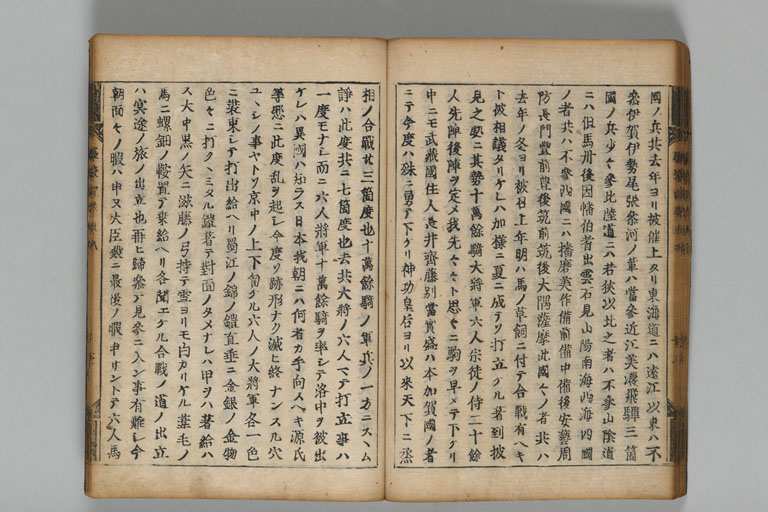 國ノ兵共去年ヨリ被催上タリ東海道ニハ遠江以東ハ不
參伊賀伊勢尾張參河ノ輩ハ當參近江美濃飛驒三箇
國ノ兵少々參北陸道ニハ若狹以北之者ハ不參山陰道
ニハ但馬丹後因幡伯耆出雲石見山陽南海西海四國
ノ者共ハ不參西國ニハ播磨美作備前備中備後安藝周
防長門豐前豐後筑前筑後大隅薩摩此國々ノ者共ハ
去年ノ冬ヨリ被召上年明ハ馬ノ草飼ニ付テ合戰有ヘキ
ト被相議タリケレハ加樣ニ夏ニ成テソ打立ケル著到披
見之處ニ其勢十萬餘騎大將軍六人宗徒ノ侍二十餘
人先陣後陣ヲ定メ我先々々ト思々ニ駒ヲ早メテ下ケリ
中ニモ武藏國住人長井齊藤別當實盛ハ本加賀國ノ者
ニテ今度ハ殊ニ勇テ下ケリ神功皇后ヨリ以來天下ニ
相ノ合戰廿三箇度也十萬餘騎ノ軍兵ノ一方ニススム
諍ハ此度共ニ七箇度也去共大將ノ六人マテ打立事ハ
一度モナシ而ニ六人將軍十萬餘騎ヲ率シテ洛中ヲ被出
ケレハ異國ハ知ラス日本我朝ニハ何者カ手向ヘキ源氏
等憖ニ此度乱ヲ起シ今度ソ跡形ナク滅ヒ終ナンスル穴
ユヽシノ事ヤトソ京中ノ上下ケル六人ノ大將軍各一色
ニ裝束シテ打出給ヘリ蜀江ノ錦ノ鎧直垂ニ金銀ノ金物
色々ニ打クヽミタル鎧著テ對面ノタメナレハ甲ヲハ著給ハ
ス大中黑ノ矢ニ滋藤ノ弓持テ雪ヨリモ白カリケル葦毛ノ
馬ニ螺鈿ノ鞍置テ乘給ヘリ各聞エケル合戰ノ道ノ出立
ハ冥途ノ旅ノ出立也再ヒ歸參テ見參ニ入ン事有難シ今
朝面々ノ暇ハ申ヌ大臣殿ニ最後ノ暇申サントテ六人馬